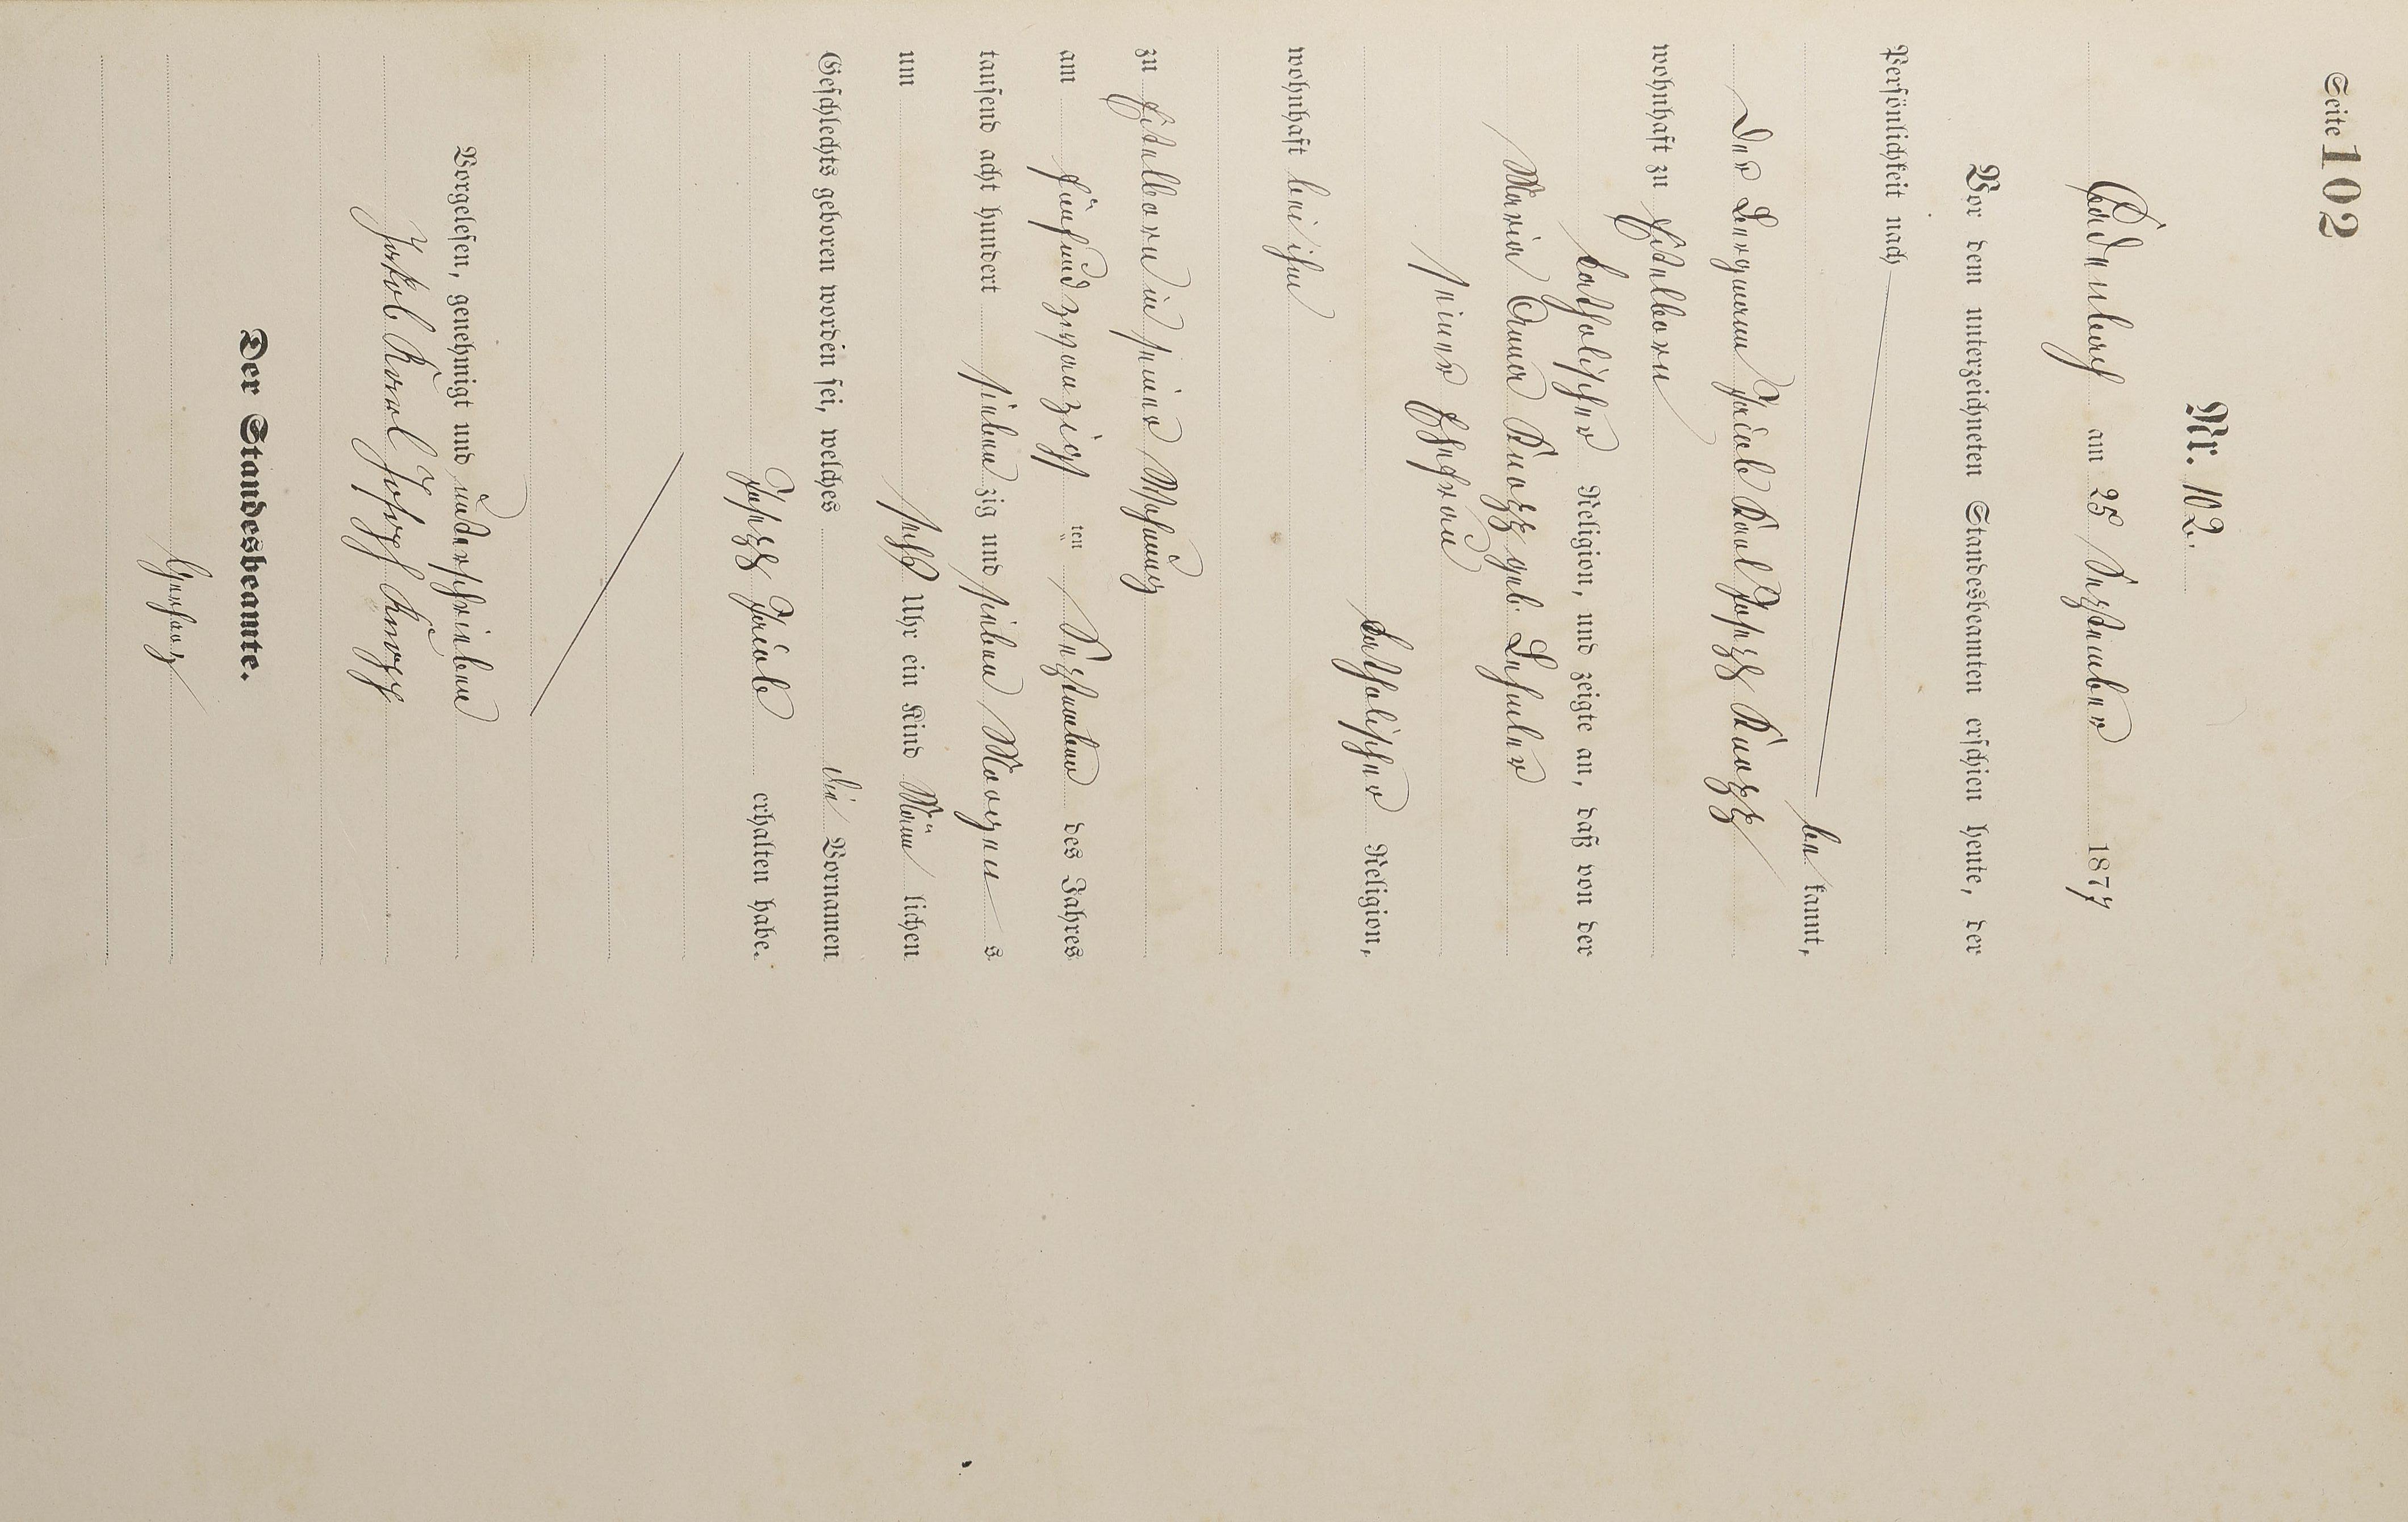 Seite 102
Nr. 102.
am 25 September 1877
Vor dem unterzeichneten Standesbeamten erschien heute, der
Persönlichkeit nach
be kannt,
der Bergmann Jacob Karl Joseph
wohnhaft zu Eitelborn
katholischer Religion, und zeigte an, daß von der
Maria Anna geb.
seiner Ehefrau
katholischer Religion,
wohnhaft bei ihm
zu Eitelborn in seiner Wohnung
am fünfundzwanzigs ten September des Jahres
tausend acht hundert sieben zig und sieben Morgen s
um sechs Uhr ein Kind Männ lichen
Geschlechts geboren worden sei, welches die Vornamen
Joseph Jacob erhalten habe.
Vorgelesen, genehmigt und unterschrieben
Jakob Karl Joseph
Der Standesbeamte.